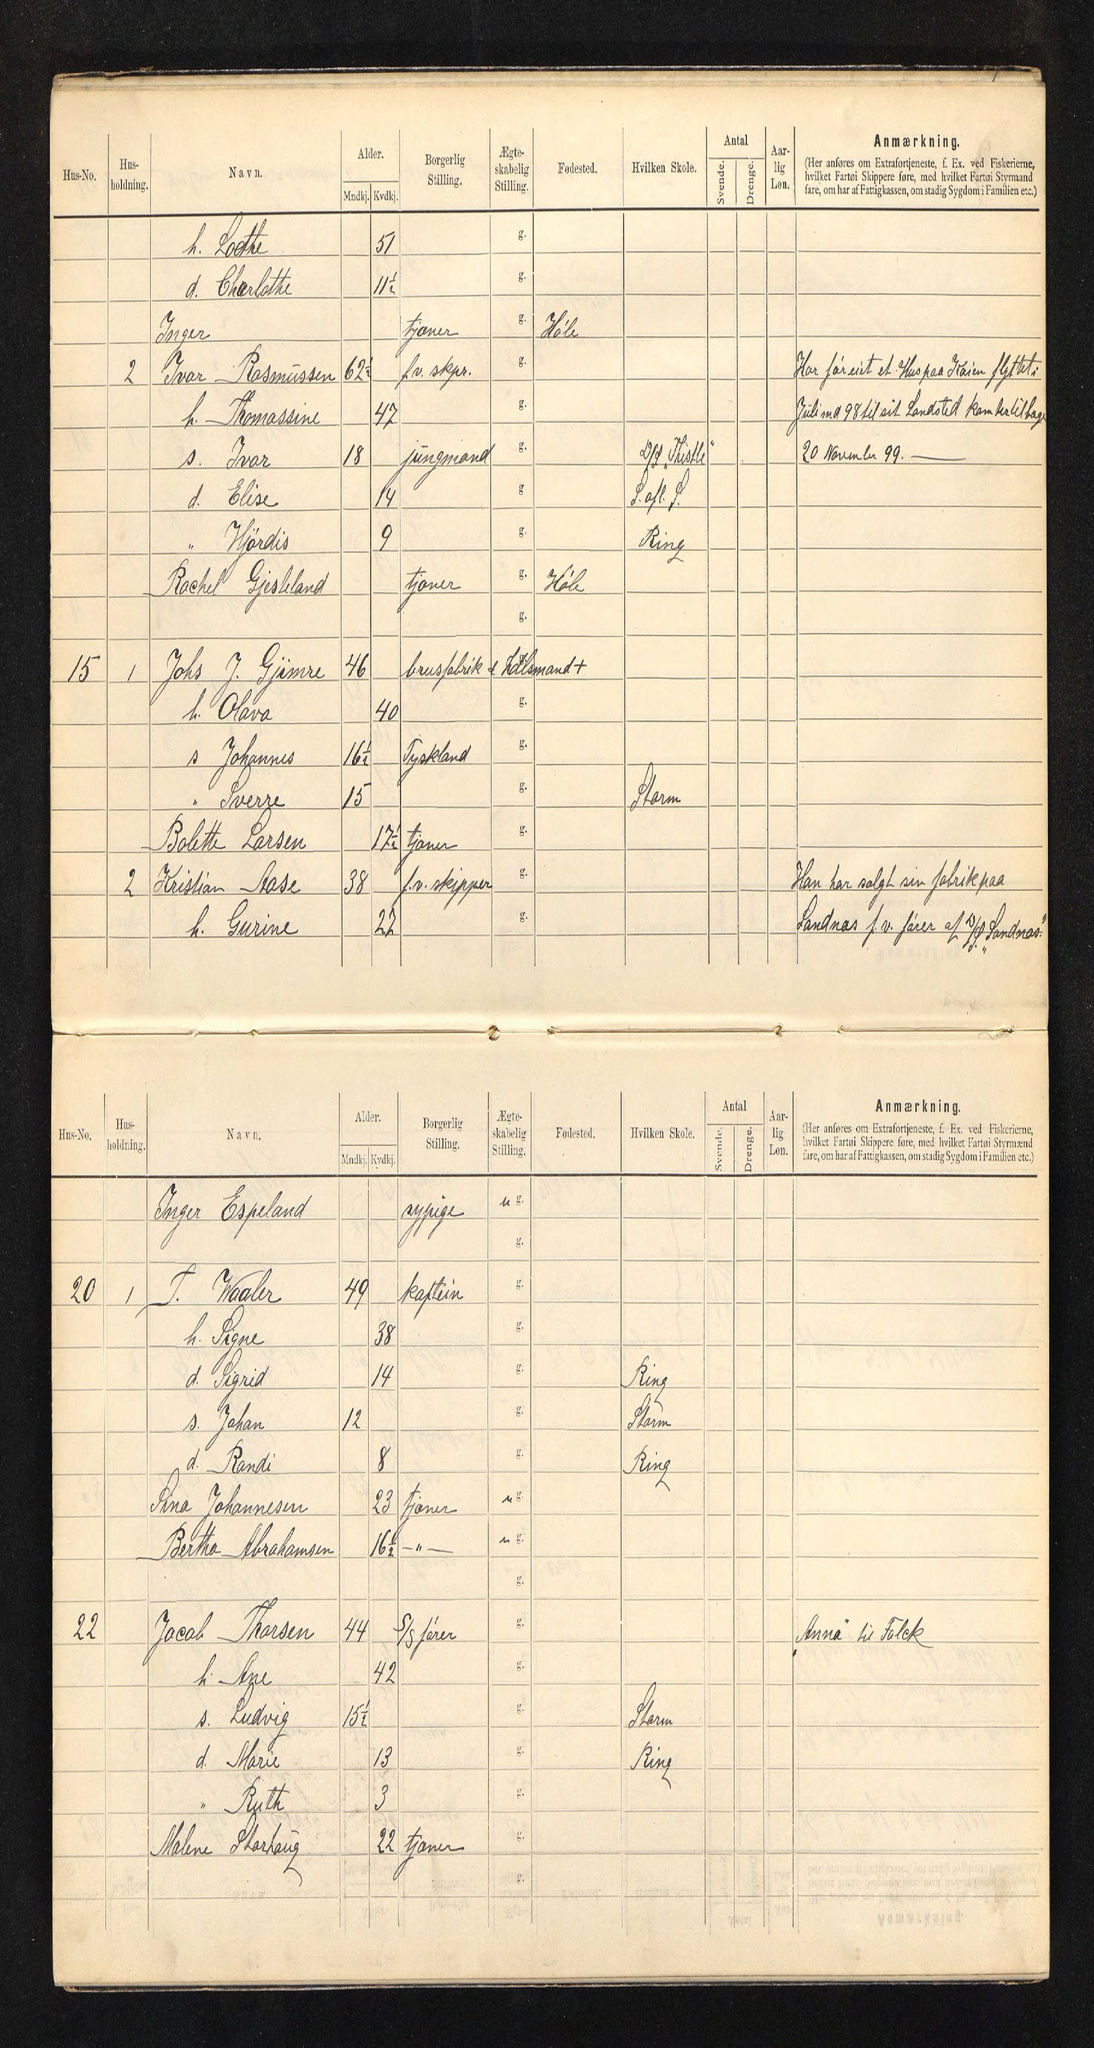 Hus-No. Hus-holdning. Navn. Alder. Mndkj. Kvdkj. Borgerlig Stilling. Ægte-skabelig Stilling. Fødested. Hvilken Skole. Antal Svende. Drenge. Aar-lig Løn. Anmærkning.
(Her anføres om Extrafortjeneste, f. Ex. ved Fiskerierne, hvilket Fartøi Skippere føre, med hvilket Fartøi Styrmænd fare, om har af Fattigkassen, om stadig Sygdom i Familien etc.)
h. Lothe 51 g.
d. Charlothe 11½ g.
Inger tjener g. Høle
2 Ivar Rasmussen 62½ f.v. skpr. g. Har før eiet et Hus paa Kaien flyttet i
h. Thomassine 47 g. Juli md 98 til sit Landsted kom her tilbage
s. Ivar 18 jungmand g. D/S „Thistle" 20 November 99. —
d. Elise 14 g. S. afl. S.
" Hjørdis 9 g. Ring
Rachel Gjesteland tjener g. Høle
g.
15 1 Johs J. Gjimre 46 brusfabrik & Hdlsmand +
h. Olava 40 g.
s Johannes 16½ Tyskland g.
" Sverre 15 g. Storm
Bolette Larsen 17½ tjener g.
2 Kristian Aase 38 f.v. skipper g. Han har solgt sin fabrik paa
h. Gurine 22 g. Sandnæs f.v. fører af D/S „Sandnæs."
Hus-No. Hus-holdning. Navn. Alder. Mndkj. Kvdkj. Borgerlig Stilling. Ægte-skabelig Stilling. Fødested. Hvilken Skole. Antal Svende. Drenge. Aar-lig Løn. Anmærkning.
(Her anføres om Extrafortjeneste, f. Ex. ved Fiskerierne, hvilket Fartøi Skippere føre, med hvilket Fartøi Styrmænd fare, om har af Fattigkassen, om stadig Sygdom i Familien etc.)
Inger Espeland sypige u g.
g.
20 1 T. Waaler 49 kaptein g.
h. Signe 38 g.
d. Sigrid 14 g. Ring
s. Johan 12 g. Storm
d. Randi 8 g. Ring
Sina Johannesen 23 tjener u g.
Bertha Abrahamsen 16½ —"— u g.
g.
22 Jacob Thorsen 44 S/S fører g. „Anna" til Falck
h. Ane 42 g.
s. Ludvig 15½ g. Storm
d. Marie 13 g. Ring
" Ruth 3 g.
Malene Storhaug 22 tjener g.
g.